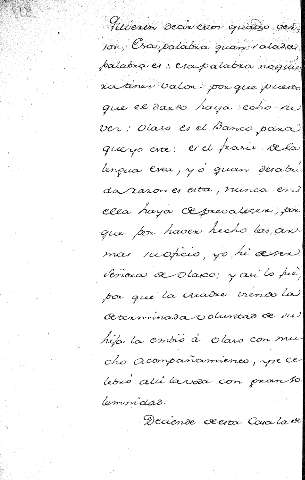 quisieron decir eres
son; Esa palabra quan salada
palabra es: esa palabra no quie
ra tener valor: por que puesto
que el daxto haya echo mo
ver: Olaso es el Banco para
que yo cree: es el frare de la
lengua eres, y ó quam desabri
da razon es esta, nunca en
ella haya de prevalecer, por
que por haver hecho las ar
mas su oficio, yo hé de ser
Señora de Olaso: y asi lo fué,
por que la madre viendo la
determinada voluntad de su
hija la embió á Olaso con mu
cho acompañamiento, y se ce
lebró alli la voda con gran so
lemnidad.
Deciende de esta Casa la de